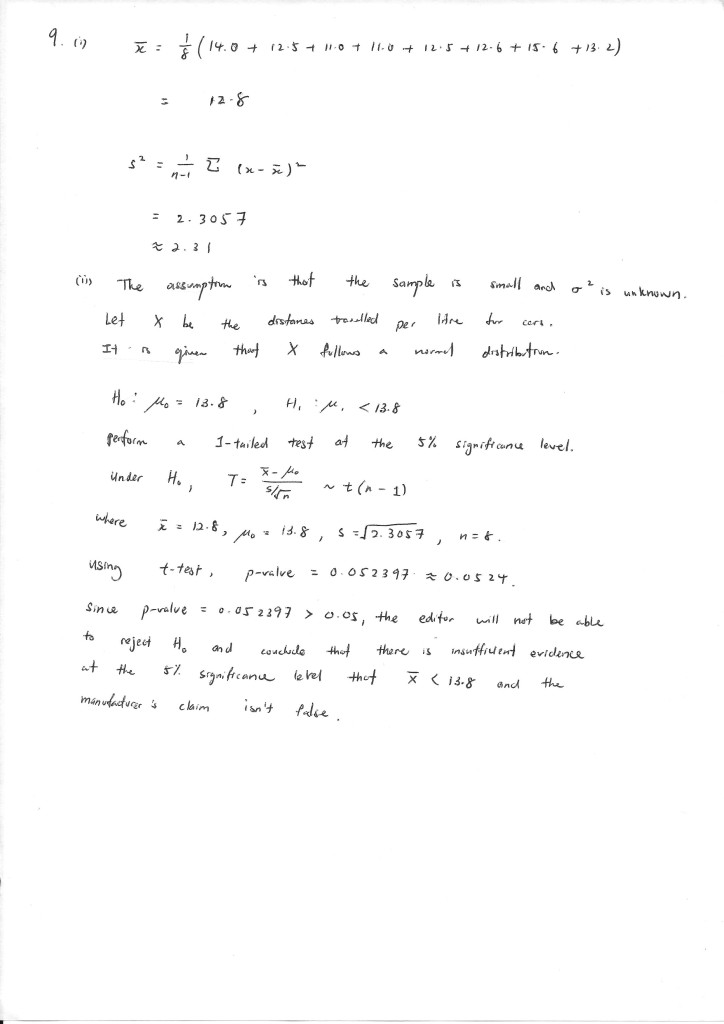 9. (i) x̄ = 1/8 (14.0 + 12.5 + 11.0 + 11.0 + 12.5 + 12.6 + 15.6 + 13.2)
= 12.8
s² = 1/(n-1) Σ (x - x̄)²
= 2.3057
≈ 2.31
(ii) The assumption is that the sample is small and σ² is unknown.
Let X be the distances travelled per litre for cars.
It is given that X follows a normal distribution.
H₀ : μ₀ = 13.8 , H₁ : μ₁ < 13.8
perform a 1-tailed test at the 5% significance level.
Under H₀, T = (x̄ - μ₀)/(s/√n) ~ t(n - 1)
where x̄ = 12.8, μ₀ = 13.8, s = √2.3057, n = 8.
using t-test, p-value = 0.052397 ≈ 0.0524.
Since p-value = 0.052397 > 0.05, the editor will not be able
to reject H₀ and conclude that there is insufficient evidence
at the 5% significance level that x̄ < 13.8 and the
manufacturer's claim isn't false.